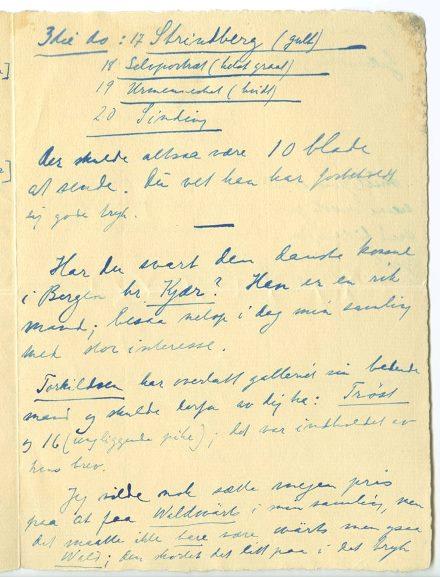 3die do: 17 Strindberg (gult)
18 Selvportræt (helst graat)
19 Urmennesket (hvidt)
20 Sinding
Der skulde altsaa være 10 blade
at sende. Du vet han har forbeholdt
sig gode tryk.
Har du svart den danske konsul
i Bergen hr. Kjær? Han er en rik
mand; besaa netop i dag min samling
med stor interesse.
Torkildsen har overlatt galleriet sin betende
mand og skulde derfor av dig ha: Trøst
og 16 (ungliggende pike); det var indholdet av
hans brev.
Jeg vilde nok sætte megen pris
paa at faa Waldwärts i min samling, men
det maatte ikke bare være wärts men ogsaa
Wald; den skortet det litt paa i det tryk